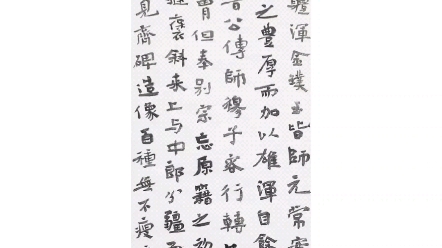 渾金璞玉皆師元常
之豐厚而加以雄渾自餘
公傳師穆子容行轉
胄但奉別宗忘原籍之初
褒斜来上与中郎分疆
見齊碑造像百種無不瘦